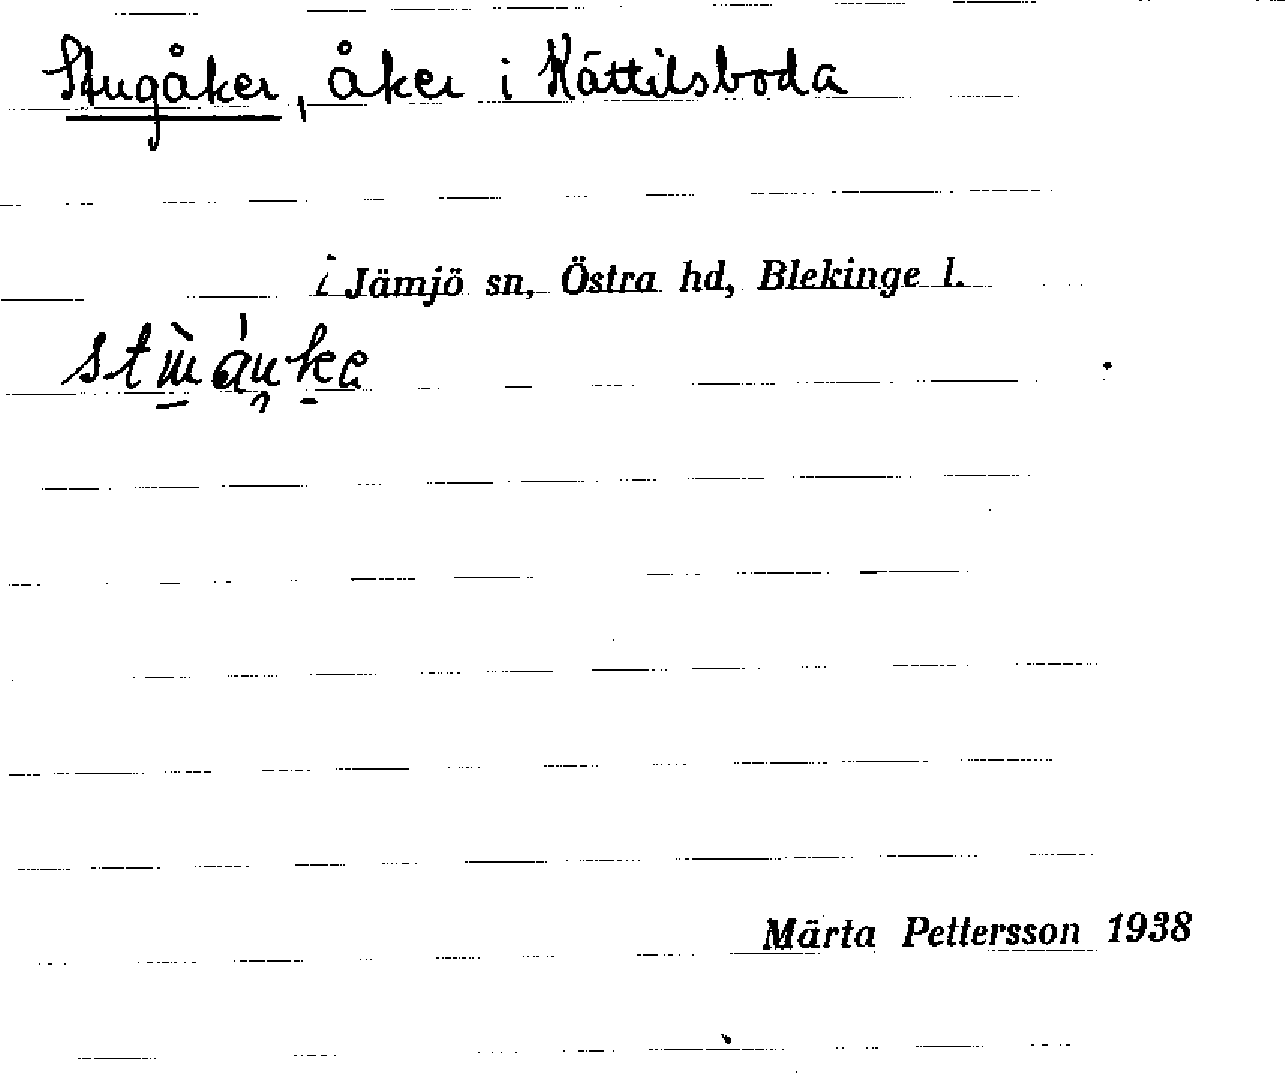 Stugåker, åker i Kättilsboda
i Jämjö sn, Östra hd, Blekinge l.
Märta Pettersson 1938